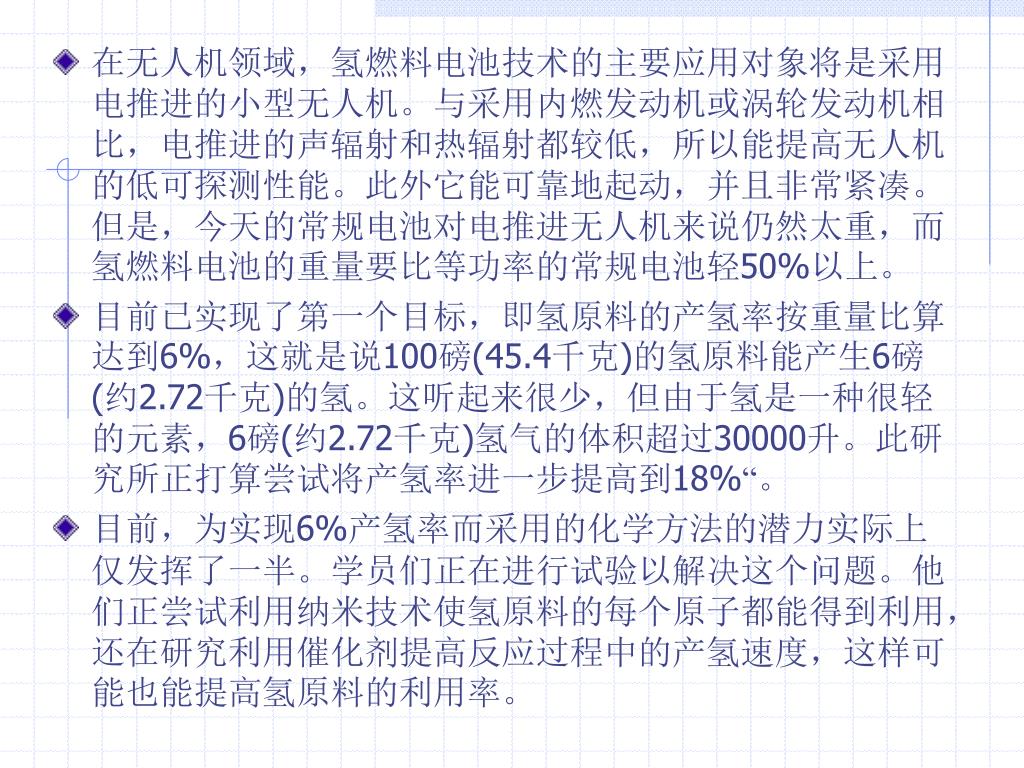 在无人机领域，氢燃料电池技术的主要应用对象将是采用
电推进的小型无人机。与采用内燃发动机或涡轮发动机相
比，电推进的声辐射和热辐射都较低，所以能提高无人机
的低可探测性能。此外它能可靠地起动，并且非常紧凑。
但是，今天的常规电池对电推进无人机来说仍然太重，而
氢燃料电池的重量要比等功率的常规电池轻50%以上。
目前已实现了第一个目标，即氢原料的产氢率按重量比算
达到6%，这就是说100磅(45.4千克)的氢原料能产生6磅
(约2.72千克)的氢。这听起来很少，但由于氢是一种很轻
的元素，6磅(约2.72千克)氢气的体积超过30000升。此研
究所正打算尝试将产氢率进一步提高到18%“。
目前，为实现6%产氢率而采用的化学方法的潜力实际上
仅发挥了一半。学员们正在进行试验以解决这个问题。他
们正尝试利用纳米技术使氢原料的每个原子都能得到利用，
还在研究利用催化剂提高反应过程中的产氢速度，这样可
能也能提高氢原料的利用率。